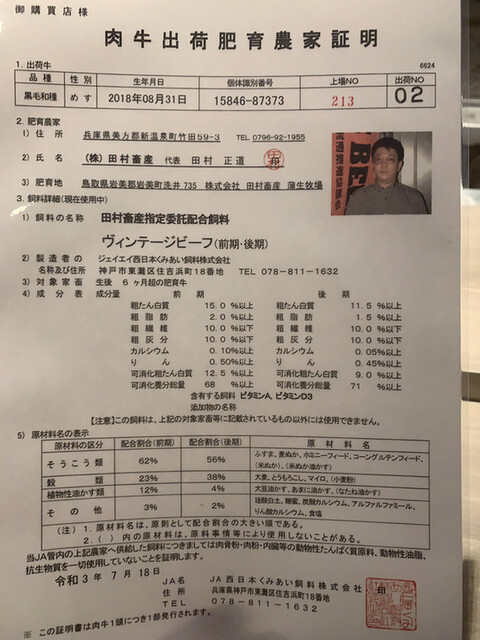 御購買店様
肉牛出荷肥育農家証明
1. 出荷牛
6624
品種 性別 生年月日 個体識別番号 上場NO 出荷NO
黒毛和種 めす 2018年08月31日 15846-87373 213 02
2. 肥育農家
1) 住所 兵庫県美方郡新温泉町竹田59-3 TEL 0796-92-1955
2) 氏名 (株)田村畜産 代表 田村 正道 印
3) 肥育地 鳥取県岩美郡岩美町洗井735 株式会社 田村畜産 蒲生牧場
3. 飼料詳細(現在使用中)
1) 飼料の名称 田村畜産指定委託配合飼料
ヴィンテージビーフ(前期・後期)
2) 製造者の名称及び住所 ジェイエイ西日本くみあい飼料株式会社
神戸市東灘区住吉浜町18番地 TEL 078-811-1632
3) 対象家畜 生後 6ヶ月超の肥育牛
4) 成分表 成分量 前期 後期
粗たん白質 15.0 %以上 粗たん白質 11.5 %以上
粗脂肪 2.0 %以上 粗脂肪 1.5 %以上
粗繊維 10.0 %以下 粗繊維 10.0 %以下
粗灰分 10.0 %以下 粗灰分 10.0 %以下
カルシウム 0.10%以上 カルシウム 0.05%以上
りん 0.50%以上 りん 0.45%以上
可消化粗たん白質 12.5 %以上 可消化粗たん白質 9.0 %以上
可消化養分総量 68 %以上 可消化養分総量 71 %以上
含有する飼料 ビタミンA, ビタミンD3
添加物の名称
【注意】この飼料は、上記の対象家畜等に記載されているもの以外には使用できません。
5) 原材料名の表示
原材料の区分 配合割合(前期) 配合割合(後期) 原材料名
そうこう類 62% 56% ふすま, 麦ぬか, ホミニーフィード, コーングルテンフィード, (米ぬか), (米ぬか油かす)
穀類 23% 38% 大麦, とうもろこし, マイロ, (小麦粉)
植物性油かす類 12% 4% 大豆油かす, あまに油かす, (なたね油かす)
その他 3% 2% 珪酸白土, 糖蜜, 炭酸カルシウム, アルファルファミール, りん酸カルシウム, 食塩
(注) 1. 原材料名は、原則として配合割合の大きい順である。
2. ( ) 内の原材料は、原料事情等により使用しないことがある。
当JA管内の上記農家へ供給した飼料につきましては肉骨粉・肉粉・内臓等の動物性たんぱく質原料、動物性油脂、
抗生物質を一切使用していないことを証明します。
令和3年7月18日
JA名 JA西日本くみあい飼料株式会社
住所 兵庫県神戸市東灘区住吉浜町18番地
TEL 078-811-1632
印
※ この証明書は肉牛1頭につき1部発行されます。